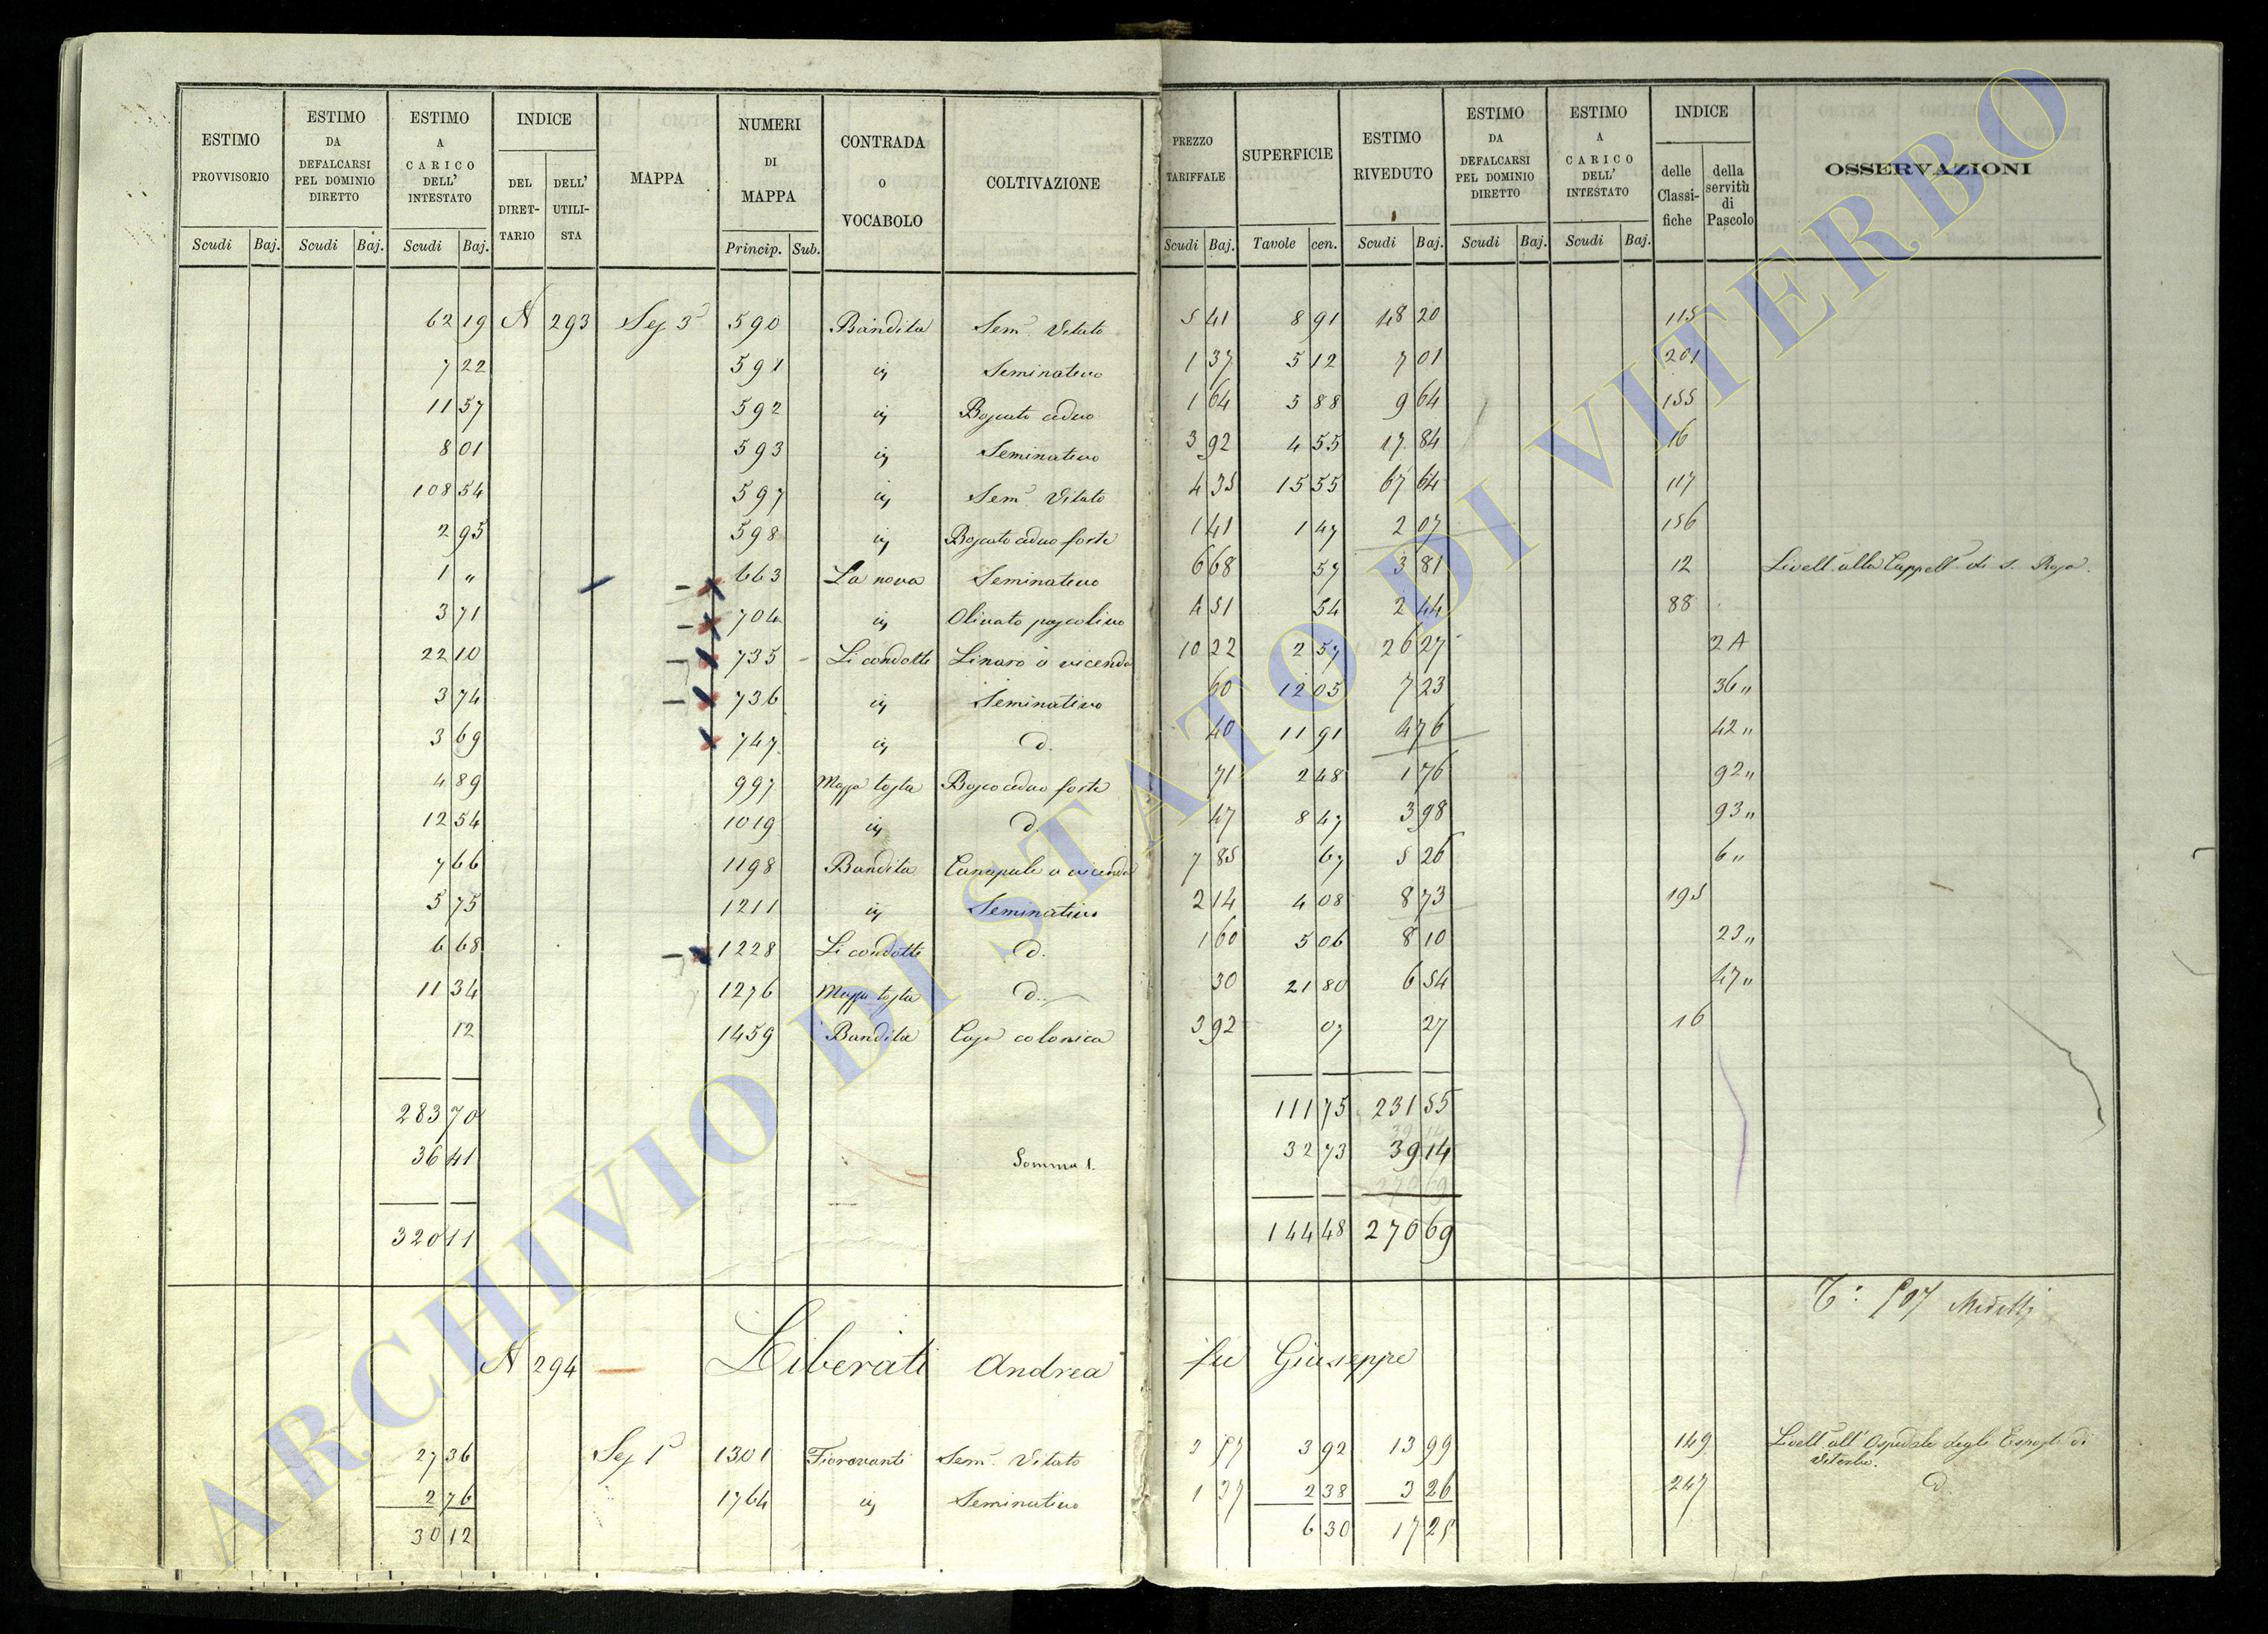 ESTIMO PROVVISORIO
ESTIMO DA DEFALCARSI PEL DOMINIO DIRETTO
ESTIMO A CARICO DELL' INTESTATO
INDICE
DEL DIRET-TARIO
DELL' UTILI-STA
MAPPA
NUMERI DI MAPPA
CONTRADA O VOCABOLO
COLTIVAZIONE
PREZZO TARIFFALE
SUPERFICIE
ESTIMO RIVEDUTO
ESTIMO DA DEFALCARSI PEL DOMINIO DIRETTO
ESTIMO A CARICO DELL' INTESTATO
INDICE
delle Classi-fiche
della servitù di Pascolo
OSSERVAZIONI
Scudi Baj. Scudi Baj. Scudi Baj. Princip. Sub. Scudi Baj. Tavole cen. Scudi Baj. Scudi Baj. Scudi Baj.
62 19 A 293 Sez 3ª 590 Bandita Sem. Vitato 5 41 8 91 48 20 115
7 22 591 id Seminativo 1 37 5 12 7 01 201
11 57 592 id Boscato ceduo 1 64 5 88 9 64 155
8 01 593 id Seminativo 3 92 4 55 17 84 16
108 54 597 id Sem. Vitato 4 35 15 55 67 64 117
2 95 598 id Boscato ceduo forte 1 41 1 47 2 07 156
1 " 663 La nova Seminativo 6 68 57 3 81 12 Livell. alla Cappell. di S.
3 71 704 id Olivato pascolivo 4 51 54 2 44 88
22 10 735 Li condotti Linaro a vicenda 10 22 2 57 26 27 2 A
3 74 736 id Seminativo 60 12 05 7 23 36 "
3 69 747 id d. 40 11 91 4 76 42 "
4 89 997 Bosco ceduo forte 71 2 48 1 76 92 "
12 54 1019 id d. 47 8 47 3 98 93 "
7 66 1198 Bandita Canapule a vicenda 7 85 67 5 26 6 "
5 75 1211 id Seminativo 2 14 4 08 8 73 195
6 68 1228 Li condotti d. 1 60 5 06 8 10 23 "
11 34 1276 d. 30 21 80 6 54 47 "
12 1459 Bandita Casa colonica 3 92 07 27 16
283 70 111 75 231 55
36 41 Somma 1. 32 73 39 14
320 11 144 48 270 69
A 294 Liberati Andrea fu Giuseppe
27 36 Sez 1ª 1301 Fioravanti Sem. Vitato 3 57 3 92 13 99 149 Livell. all' Ospedale degli Esposti di Viterbo.
2 76 1764 id Seminativo 1 37 2 38 3 26 247 d.
30 12 6 30 17 25
ARCHIVIO DI STATO DI VITERBO